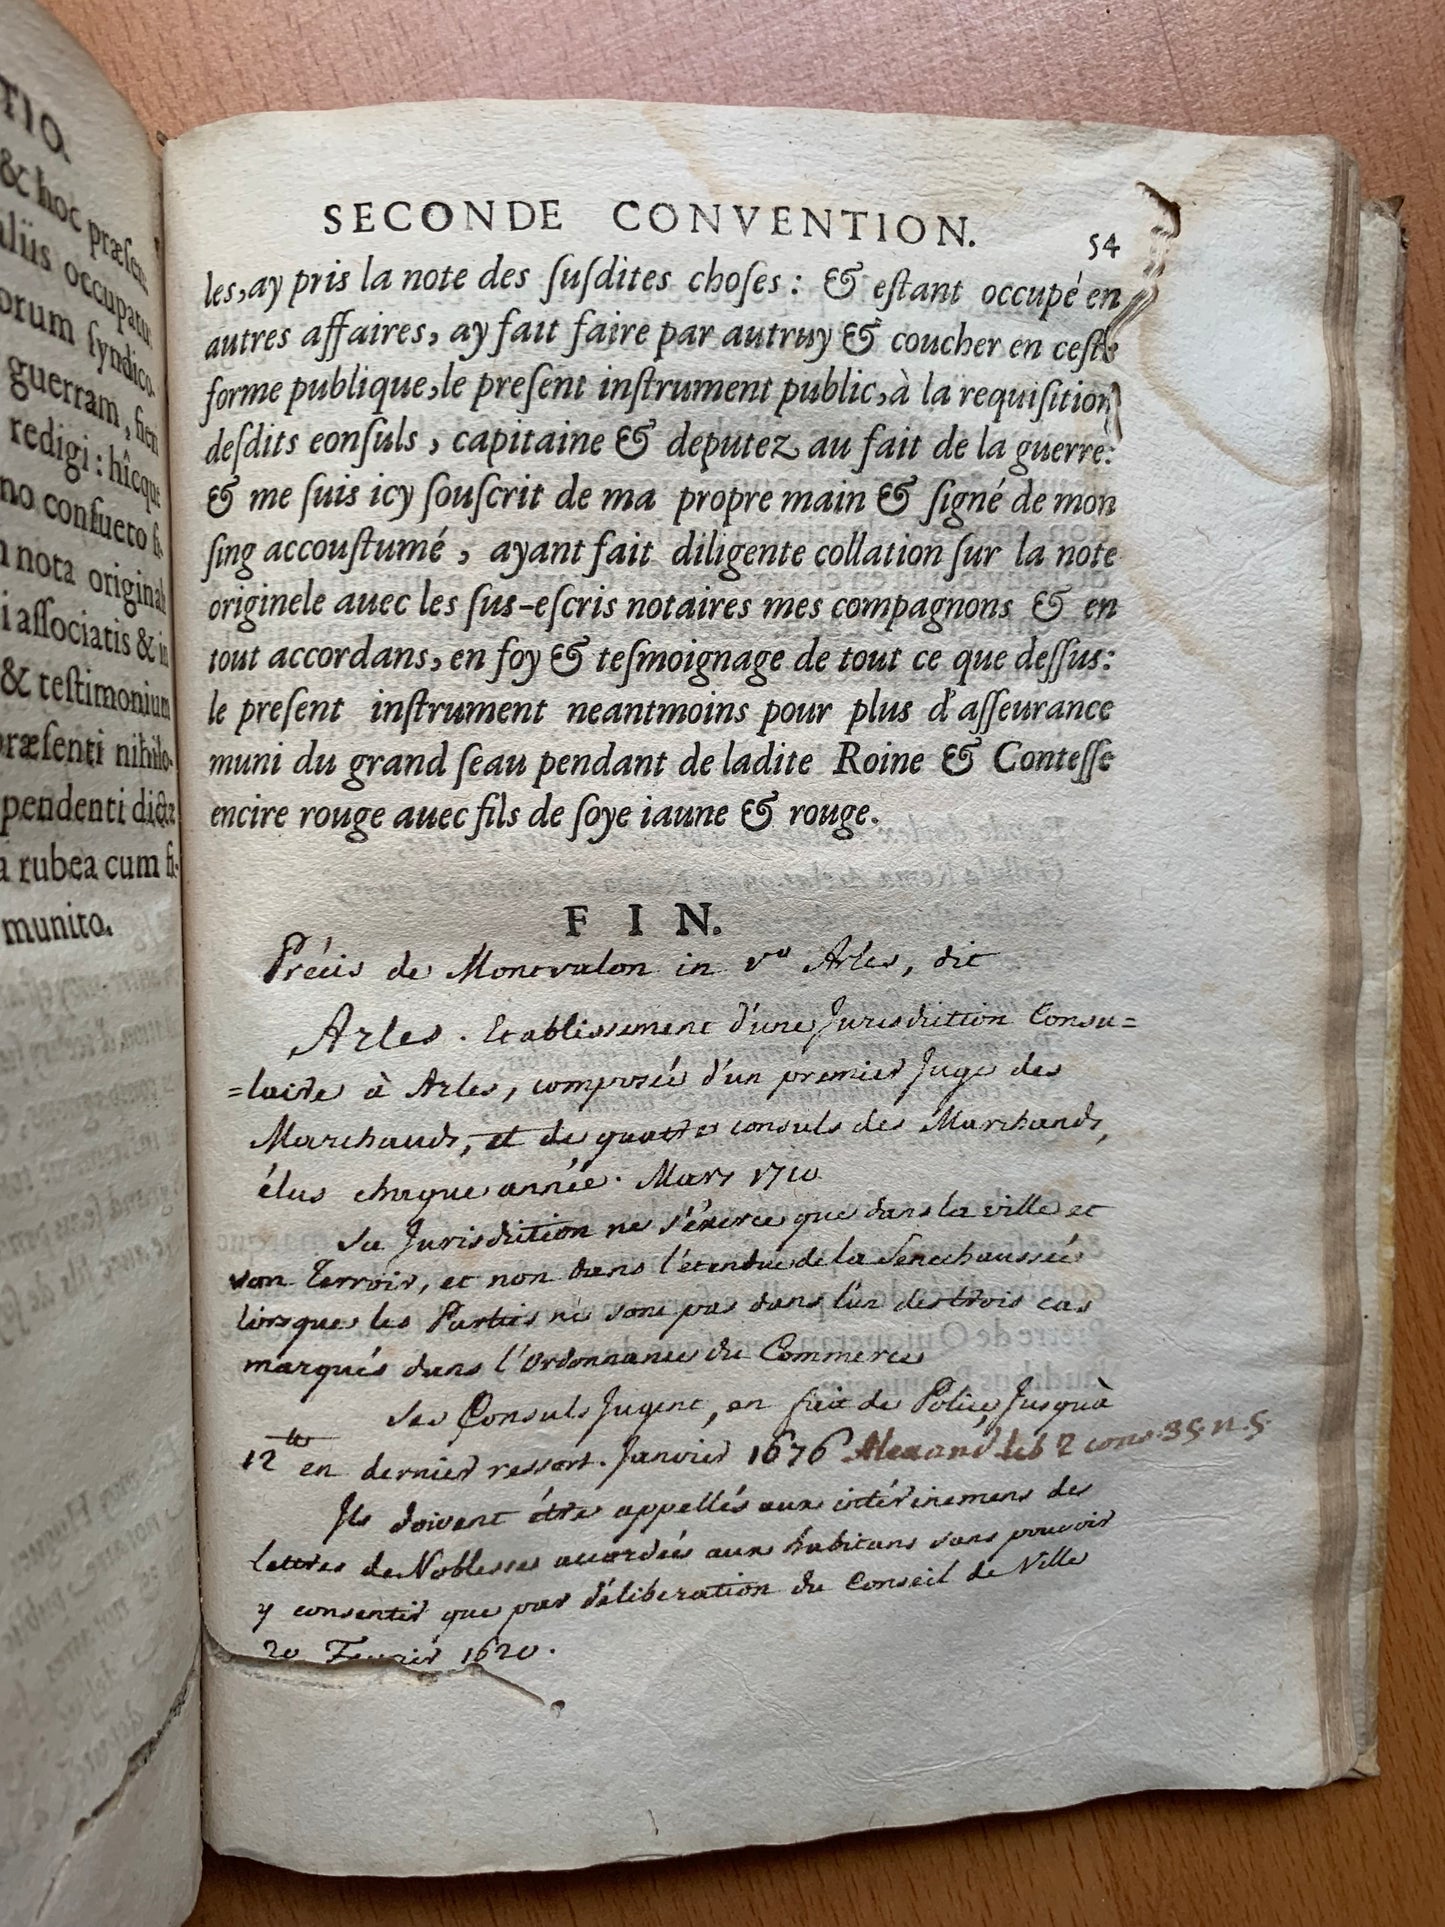 TIO.
& hoc præsens
aliis occupatu
orum syndico-
guerram, fieri
redigi: hîcque
no consueto si-
nota originali
i associatis & in
& testimonium
præsenti nihilo-
pendenti dictæ
a rubea cum fi-
munito.
SECONDE CONVENTION. 54
les, ay pris la note des ſuſdites choſes : & eſtant occupé en
autres affaires, ay fait faire par autruy & coucher en ceſte
forme publique, le preſent inſtrument public, à la requiſition
deſdits eonſuls, capitaine & deputez au fait de la guerre:
& me ſuis icy ſouſcrit de ma propre main & ſigné de mon
ſing accouſtumé, ayant fait diligente collation ſur la note
originele auec les ſus-eſcris notaires mes compagnons & en
tout accordans, en foy & teſmoignage de tout ce que deſſus:
le preſent inſtrument neantmoins pour plus d'aſſeurance
muni du grand ſeau pendant de ladite Roine & Conteſſe
encire rouge auec fils de ſoye iaune & rouge.
FIN.
Précis de Montvalon in v° Arles, dit
Arles. Etablissement d'une Jurisdiction Consu=
=laire à Arles, composée d'un premier Juge des
Marchands, et de quatre consuls des Marchands,
élus chaque année. Mars 1710
Sa Jurisdiction ne s'éxerce que dans la ville et
son Terroir, et non dans l'étendue de la Senechaussée
lorsque les Parties ne sont pas dans l'un des trois cas
marqués dans l'Ordonnance du Commerce
Ses Consuls Jugent, en fait de Police, Jusqu'à
12 tt en dernier ressort. Janvier 1676 2 cons. 35. n. 5.
Ils doivent être appellés aux intérinemens des
lettres de Noblesse accordées aux habitans sans pouvoir
y consentir que par déliberation du Conseil de Ville
20 Fevrier 1620.